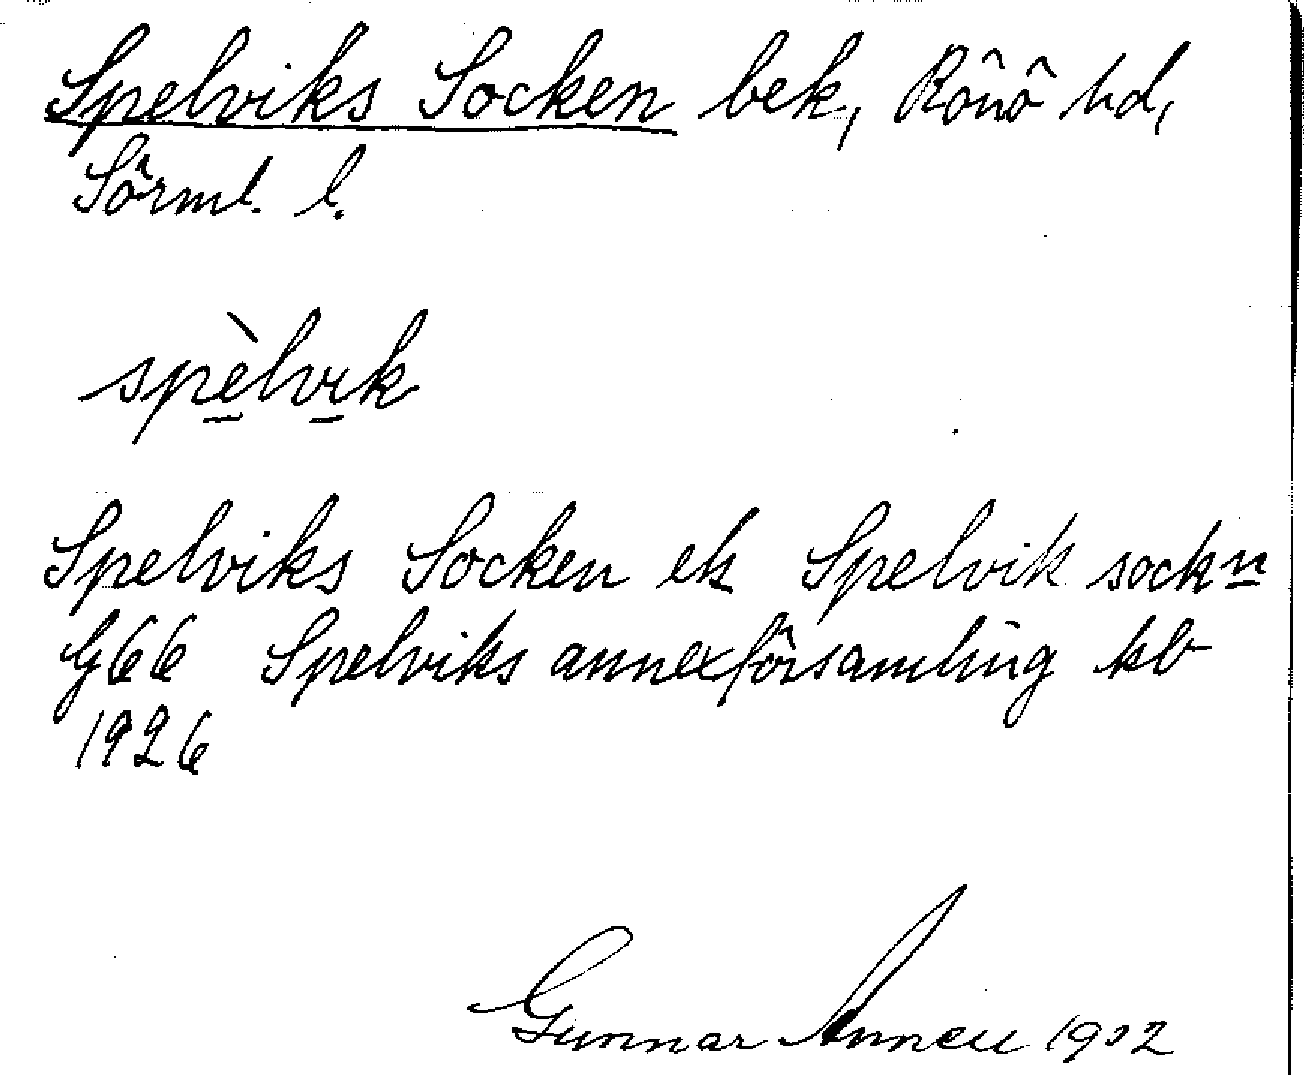 Spelviks Socken bek, Rönö hd,
Sörml. l.
spèlvik
Spelviks Socken ek Spelvik sockn
G66 Spelviks annexförsamling kb
1926
Gunnar 1932